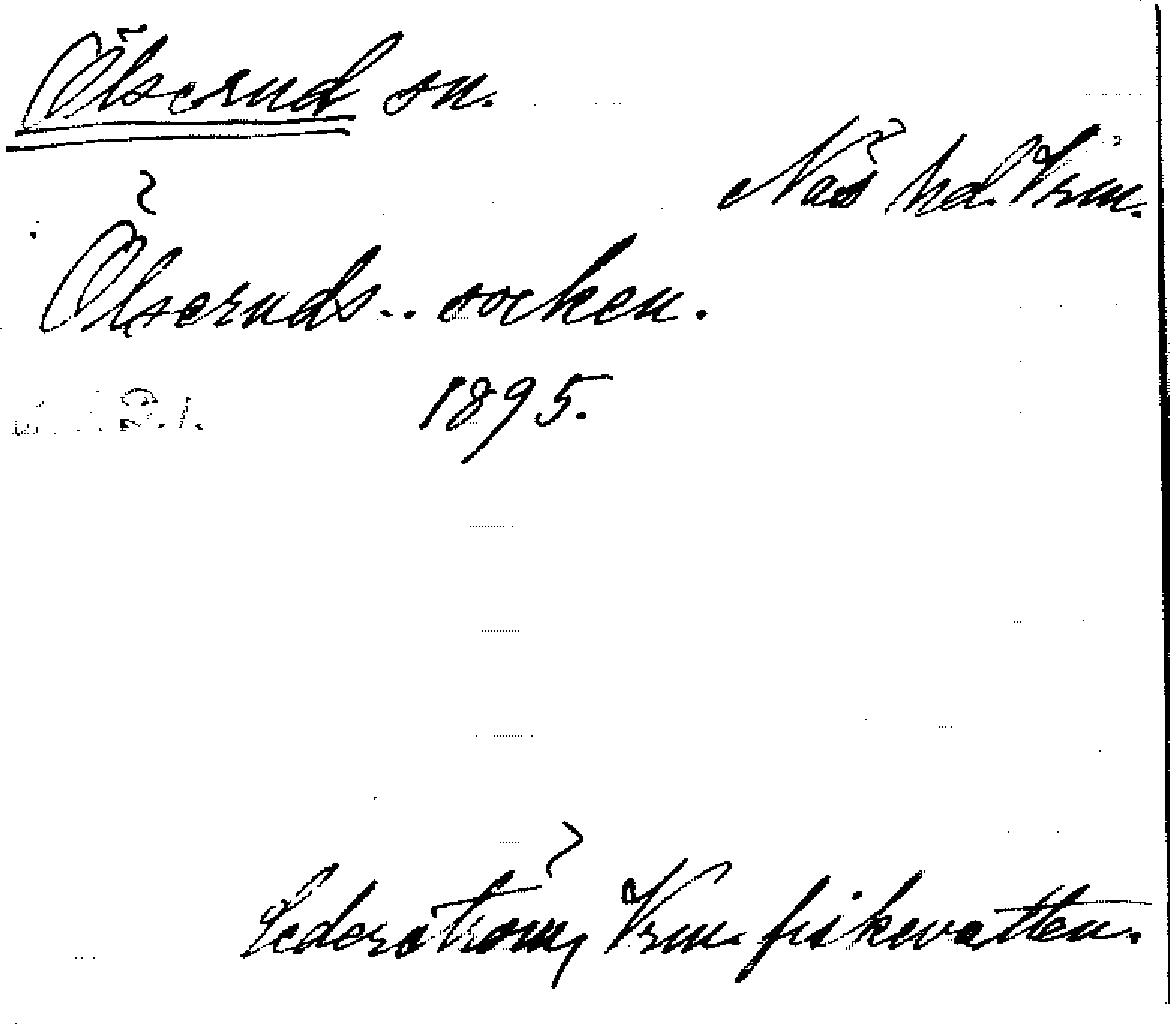 Ölserud sn.
Näs hd. Vrm.
Ölseruds-. socken.
1895.
Cederström, Vrm. fiskevatten.